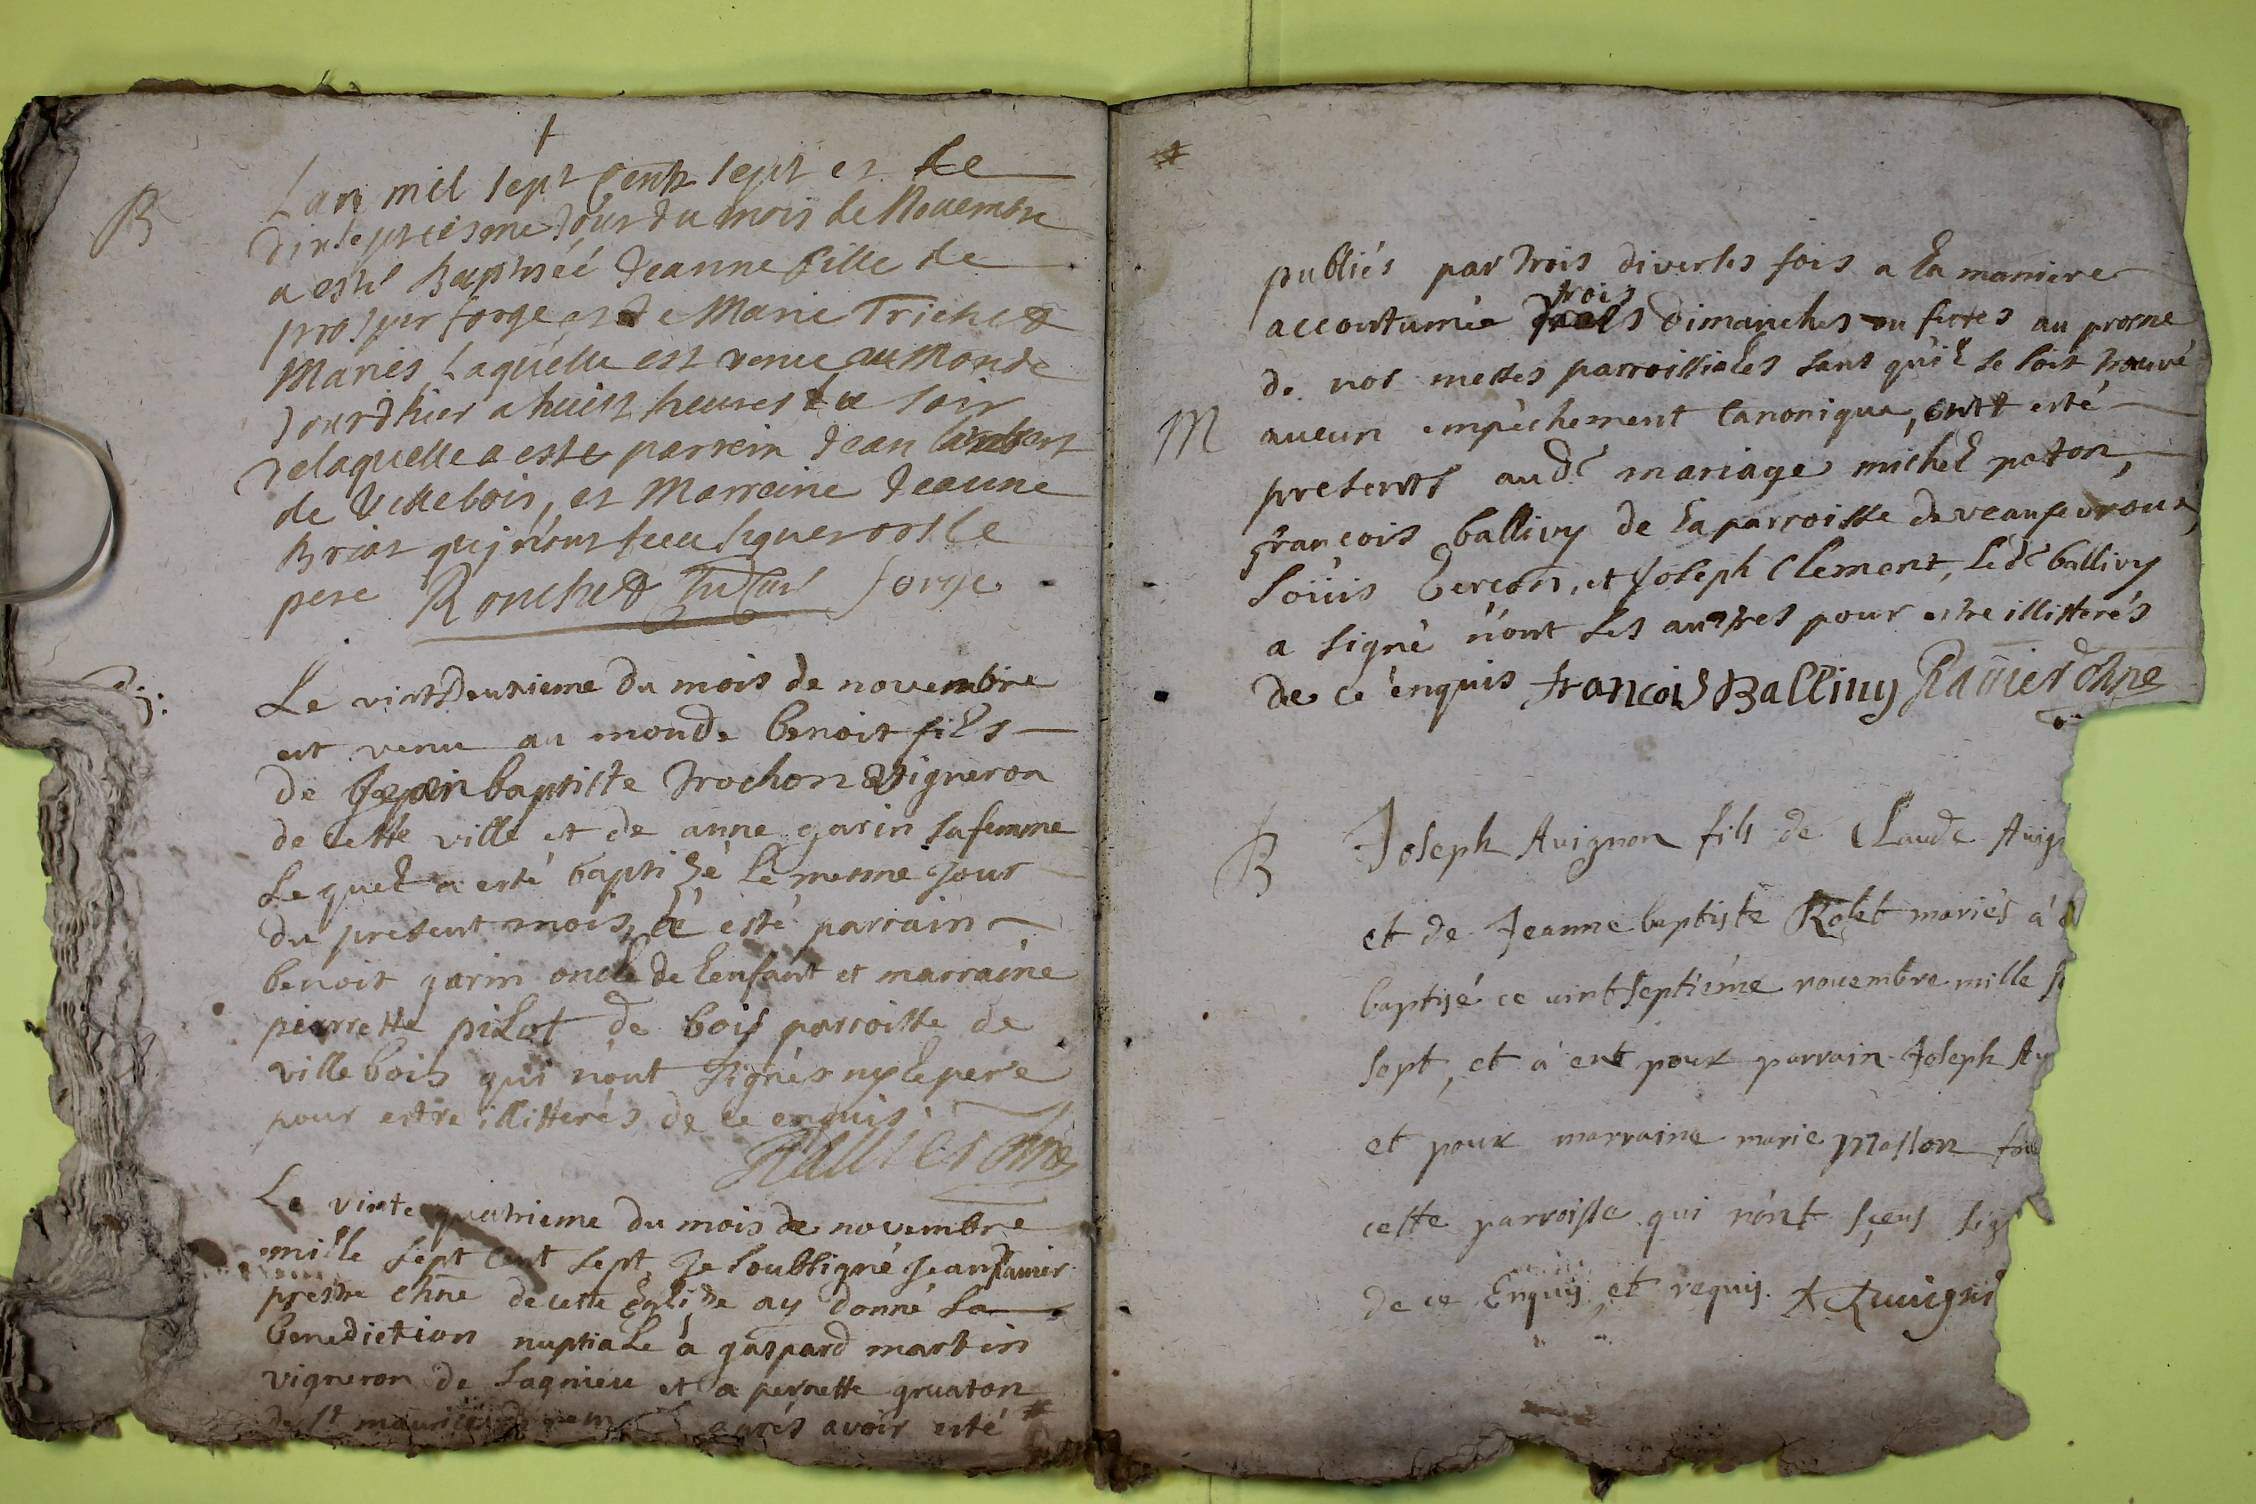 B
Lan mil sept cents sept et le
dixseptiesme Jour du mois de Nouembre
a esté Baptiséé Jeanne fille de
prosper forge et de Marie Trichet
Mariés, Laquelle est venue au Monde
Jourdhier a huict heures du soir
de laquelle a este parrein Jean
de Villebois, et Marraine Jeanne
Briat qui n'ont sceu signer le
pere Rouchet forge
B:
Le vint deuxieme du mois de novembre
est venu au monde benoit fils
de Jean baptiste trochon vigneron
de cette ville et de anne garin sa femme
Lequel a esté baptizé le mesme Jour
du present mois, a esté parrain
benoit garin oncle de Lenfant et marraine
pierrette pilot de bois parroisse de
ville bois qui n'ont signés ny le pere
pour estre illitterés de ce enquis.
Rauier chne
Le vinte quatrieme du mois de novembre
mille sept cent sept Je soubsigné Jean Rauier
prestre chne de cette Eglize ay donné la
benediction nuptiale a gaspard martin
vigneron de Lagnieu et a pernette gruaton
de st maurice de rem apres avoir esté #
#
publiés par trois diverses fois a la maniere
accoutumée trois dimanches ou festes au prosne
de nos messes parroissiales sans qu'il se soit trouvé
M
aucun empêchement Canonique, ont esté
presents aud. mariage michel paton,
françois ballivy de la parroisse de veaufevroux,
Loüis berçon, et Joseph Clement, Led. ballivy
a signé n'ont les autres pour estre illitterés
de ce enquis francois Balliuy Rauier chne
B
Joseph Auignon fils de Claude Auig
et de Jeanne baptiste Rolet mariés à
baptisé ce uint septiéme novembre mille s
sept, et a eut pour parrain Joseph Au
et pour marraine marie Masson
cette parroisse qui n'ont sçeus sig
de ce Enquis, et requis. A Rauigni